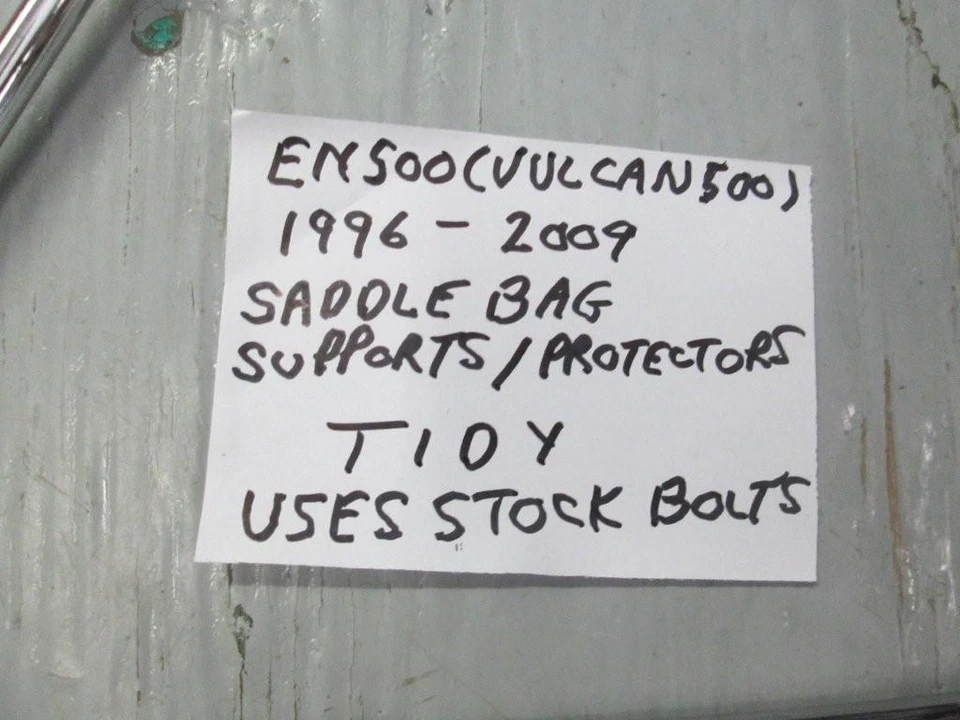 EN500(VULCAN500)
1996 - 2009
SADDLE BAG
SUPPORTS/PROTECTORS
TIDY
USES STOCK BOLTS